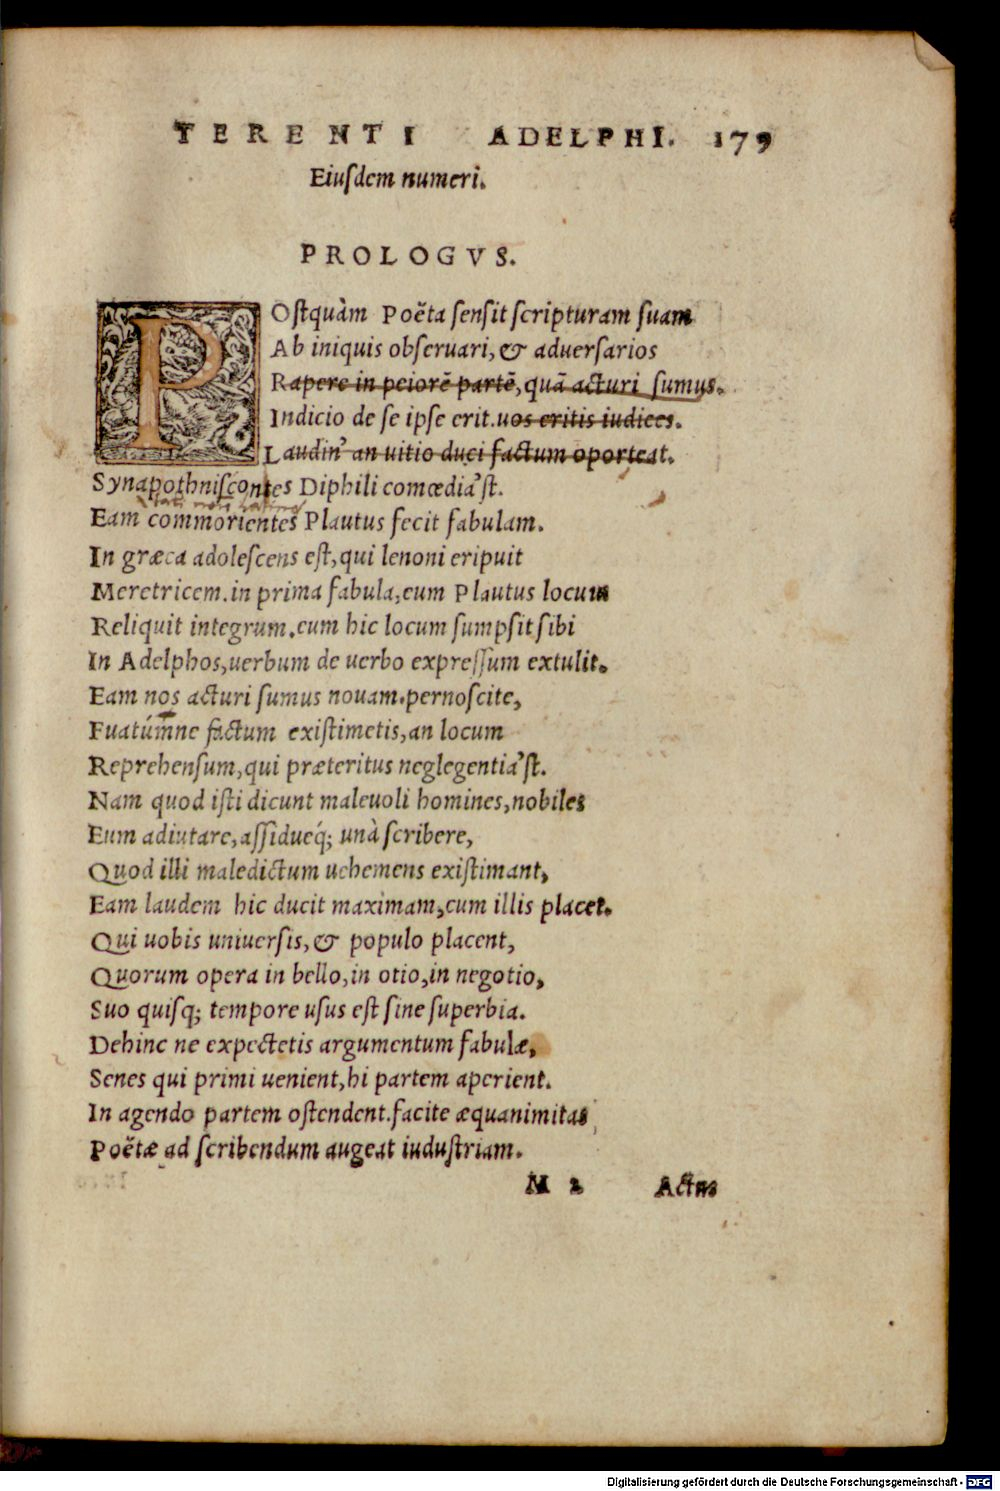 TERENTI ADELPHI. 179
Eiusdem numeri.
PROLOGVS.
POstquàm Poëta sensit scripturam suam
Ab iniquis observari, & adversarios
Rapere in peiorē partē, quā acturi sumus.
Indicio de se ipse erit. uos eritis iudices.
Laudin' an uitio duci factum oporteat.
Synapothniscontes Diphili comœdia'st.
Eam commorientes Plautus fecit fabulam.
In græca adolescens est, qui lenoni eripuit
Meretricem. in prima fabula, eum Plautus locum
Reliquit integrum. eum hic locum sumpsit sibi
In Adelphos, uerbum de uerbo expressum extulit.
Eam nos acturi sumus novam. pernoscite,
Fuatúmne factum existimetis, an locum
Reprehensum, qui præteritus neglegentia'st.
Nam quod isti dicunt malevoli homines, nobiles
Eum adiutare, assidueq́; unà scribere,
Quod illi maledictum uehemens existimant,
Eam laudem hic ducit maximam, cum illis placet.
Qui uobis universis, & populo placent,
Quorum opera in bello, in otio, in negotio,
Suo quisq; tempore usus est sine superbia.
Dehinc ne expectetis argumentum fabulæ,
Senes qui primi uenient, hi partem aperient.
In agendo partem ostendent. facite æquanimitas
Poëtæ ad scribendum augeat iudustriam.
M 2 Actus
Digitalisierung gefördert durch die Deutsche Forschungsgemeinschaft - DFG